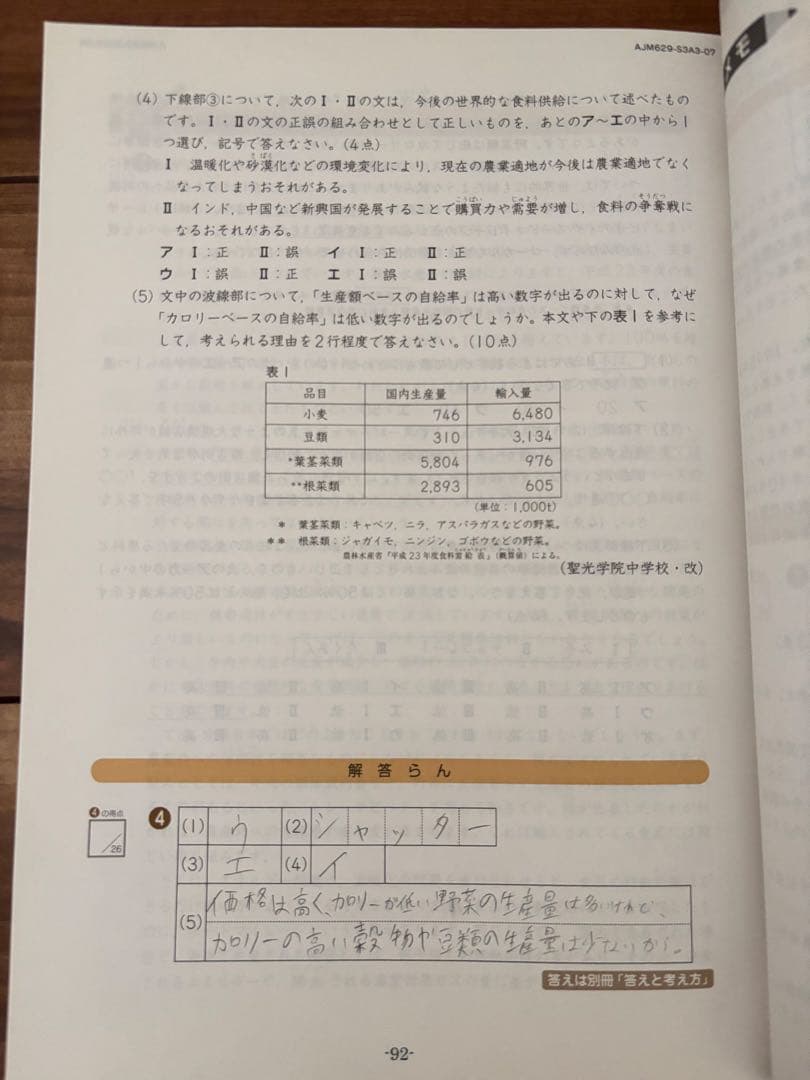 AJM629-S3A3-07
メモ
(4) 下線部③について，次のⅠ・Ⅱの文は，今後の世界的な食料供給について述べたもの
です。Ⅰ・Ⅱの文の正誤の組み合わせとして正しいものを，あとのア～エの中から1
つ選び，記号で答えなさい。(4点)
Ⅰ 温暖化や砂漠化などの環境変化により，現在の農業適地が今後は農業適地でなく
なってしまうおそれがある。
Ⅱ インド，中国など新興国が発展することで購買力や需要が増し，食料の争奪戦に
なるおそれがある。
ア Ⅰ：正 Ⅱ：誤 イ Ⅰ：正 Ⅱ：正
ウ Ⅰ：誤 Ⅱ：正 エ Ⅰ：誤 Ⅱ：誤
(5) 文中の波線部について，「生産額ベースの自給率」は高い数字が出るのに対して，なぜ
「カロリーベースの自給率」は低い数字が出るのでしょうか。本文や下の表1を参考に
して，考えられる理由を2行程度で答えなさい。(10点)
表1
品目 国内生産量 輸入量
小麦 746 6,480
豆類 310 3,134
*葉茎菜類 5,804 976
**根菜類 2,893 605
(単位：1,000t)
* 葉茎菜類：キャベツ，ニラ，アスパラガスなどの野菜。
** 根菜類：ジャガイモ，ニンジン，ゴボウなどの野菜。
農林水産省「平成23年度食料需給表」(概算値)による。
(聖光学院中学校・改)
解答らん
4の得点
/26
4 (1) ウ (2) シャッター
(3) エ (4) イ
(5) 価格は高く、カロリーが低い野菜の生産量は多いけれど、
カロリーの高い穀物や豆類の生産量は少ないから。
答えは別冊「答えと考え方」
-92-